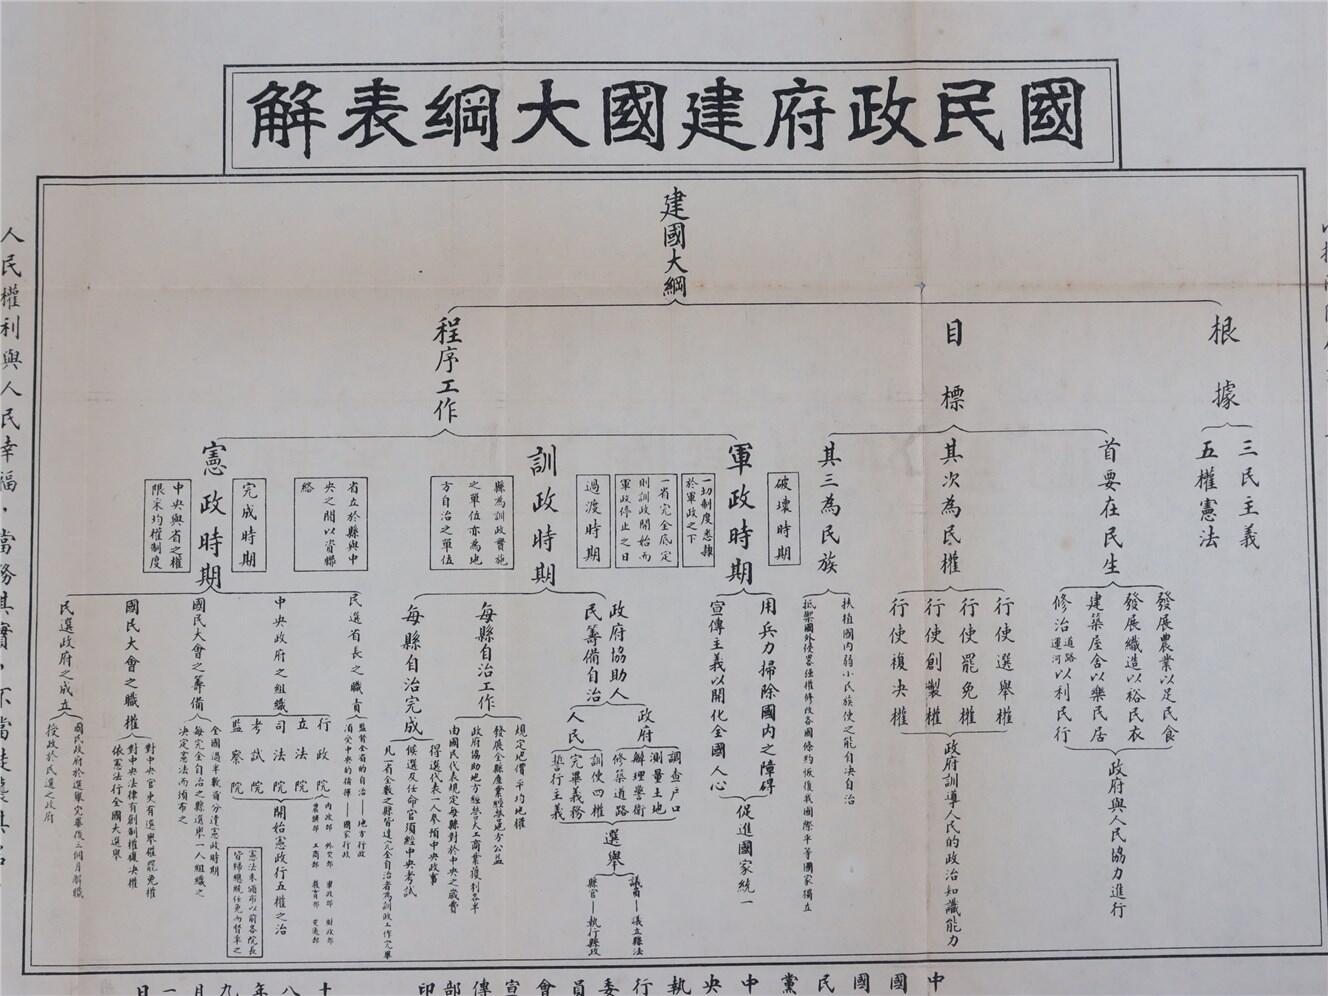 國民政府建國大綱表解
建國大綱
根據
三民主義
五權憲法
目標
首要在民生
發展農業以足民食
發展織造以裕民衣
建築屋舍以樂民居
修治道路運河以利民行
政府與人民協力進行
其次為民權
行使選舉權
行使罷免權
行使創製權
行使複決權
政府訓導人民的政治知識能力
其三為民族
扶植國內弱小民族使之能自決自治
抵禦國外侵略強權修改各國條約恢復我國際平等國家獨立
程序工作
軍政時期
破壞時期
一切制度悉隸於軍政之下
一省完全底定則訓政開始而軍政停止之日
用兵力掃除國內之障碍
宣傳主義以開化全國人心
促進國家統一
訓政時期
過渡時期
縣為訓政實施之單位亦為地方自治之單位
政府協助人民籌備自治
政府
調查戶口
測量土地
辦理警衛
修築道路
人民
訓使四權
完畢義務
誓行主義
選舉
議員—議立縣法
縣官—執行縣政
每縣自治工作
規定地價平均地權
發展全縣產業經營地方公益
政府協助地方經營大工商業獲利各半
由國民代表規定每縣對於中央之歲費
每縣自治完成
得選代表一人參預中央政事
候選及任命官須經中央考試
凡一省全數之縣皆達完全自治者為訓政工作完畢
憲政時期
省立於縣與中央之間以資聯絡
完成時期
中央與省之權限采均權制度
民選省長之職責
監督全省的自治—地方行政
須受中央的指揮—國家行政
中央政府之組織
行政院
內政部 外交部 軍政部 財政部
農礦部 工商部 教育部 交通部
立法院
司法院
考試院
監察院
開始憲政行五權之治
憲法未頒布以前各院長皆歸總統任免而督率之
國民大會之籌備
全國過半數省分達憲政時期
每完全自治之縣選舉一人組織之
決定憲法而頒布之
國民大會之職權
對中央官吏有選舉權罷免權
對中央法律有創制權複決權
依憲法行全國大選舉
民選政府之成立
國民政府於選舉完畢後三個月解職
授政於民選之政府
人民權利與人民幸福，當務其實，不當徒襲其名
中國國民黨中央執行委員會宣傳部印
十八年九月一日